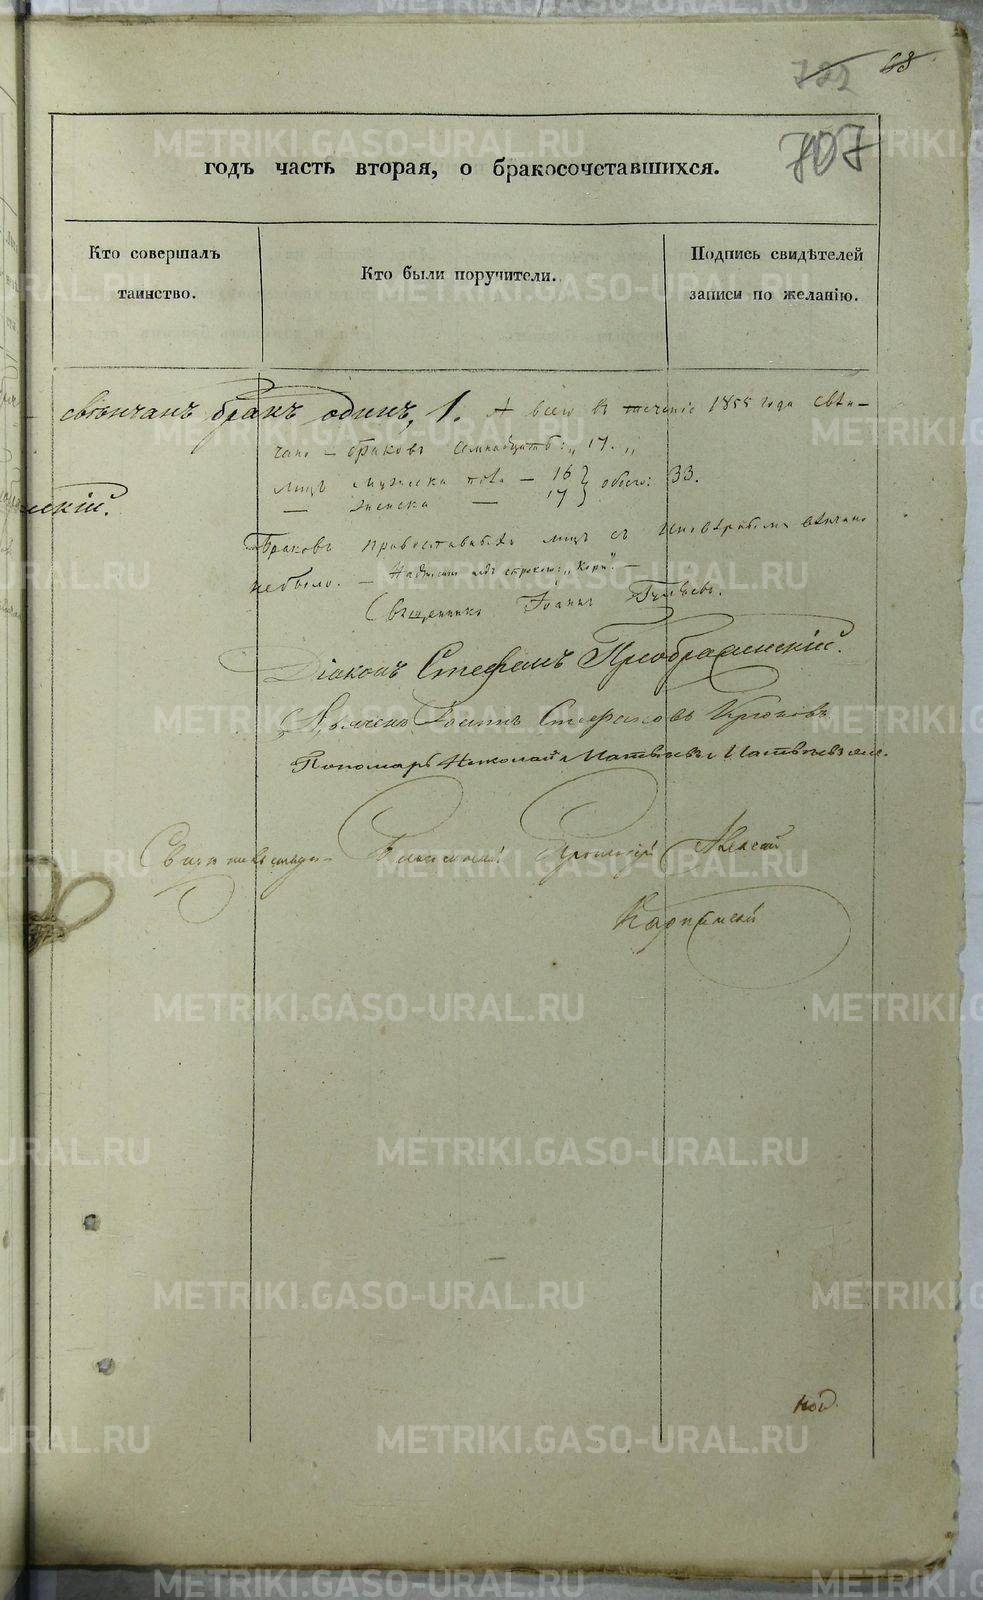 722 68
707
годъ часть вторая, о бракосочетавшихся.
Кто совершалъ
таинство.
Кто были поручители.
Подпись свидѣтелей
записи по желанію.
свѣнчанъ бракъ одинъ, 1. А всего въ теченіе 1855 года свѣн-
чано - браковъ семнадцать: „17.„
лицъ мужеска пола - 16 } обоего: 33.
— женска — 17
Браковъ православныхъ лицъ съ иновѣрными вѣнчано
не было. - Надписано надъ строкою: „
Священникъ Іоаннъ
скій.
Діаконъ Стефанъ Преображенскій.
Іоаннъ Стефановъ Крюковъ
Пономарь Николай Матвѣевъ
Протоіерей Алексій
Карпинскій
METRIKI.GASO-URAL.RU